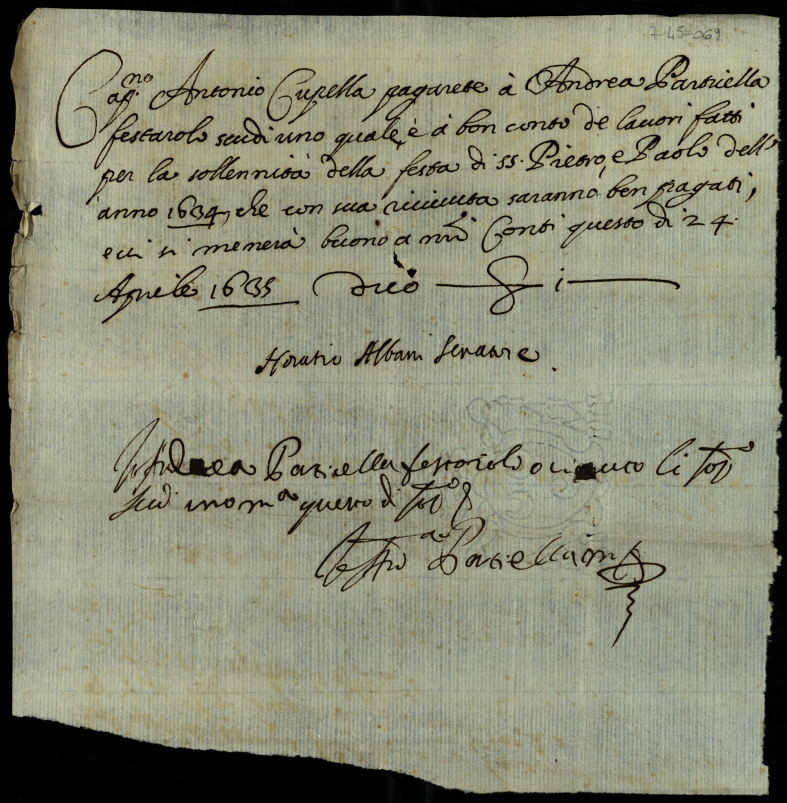 7-45-069
Cap.no Antonio Cupella pagarete à Andrea Particella
festarolo scudi uno quale è à bon conto de lavori fatti
per la sollennità della festa di SS. Pietro, e Paolo dell'
anno 1634, che con sua ricevuta saranno ben pagati,
e vi si menerà buono a nri Conti questo dì 24.
Aprile 1635 dico 1
Horatio Albani Senatore.
Andrea Particella festarolo o li sop.to
scudi uno m.a questo dì sop.to